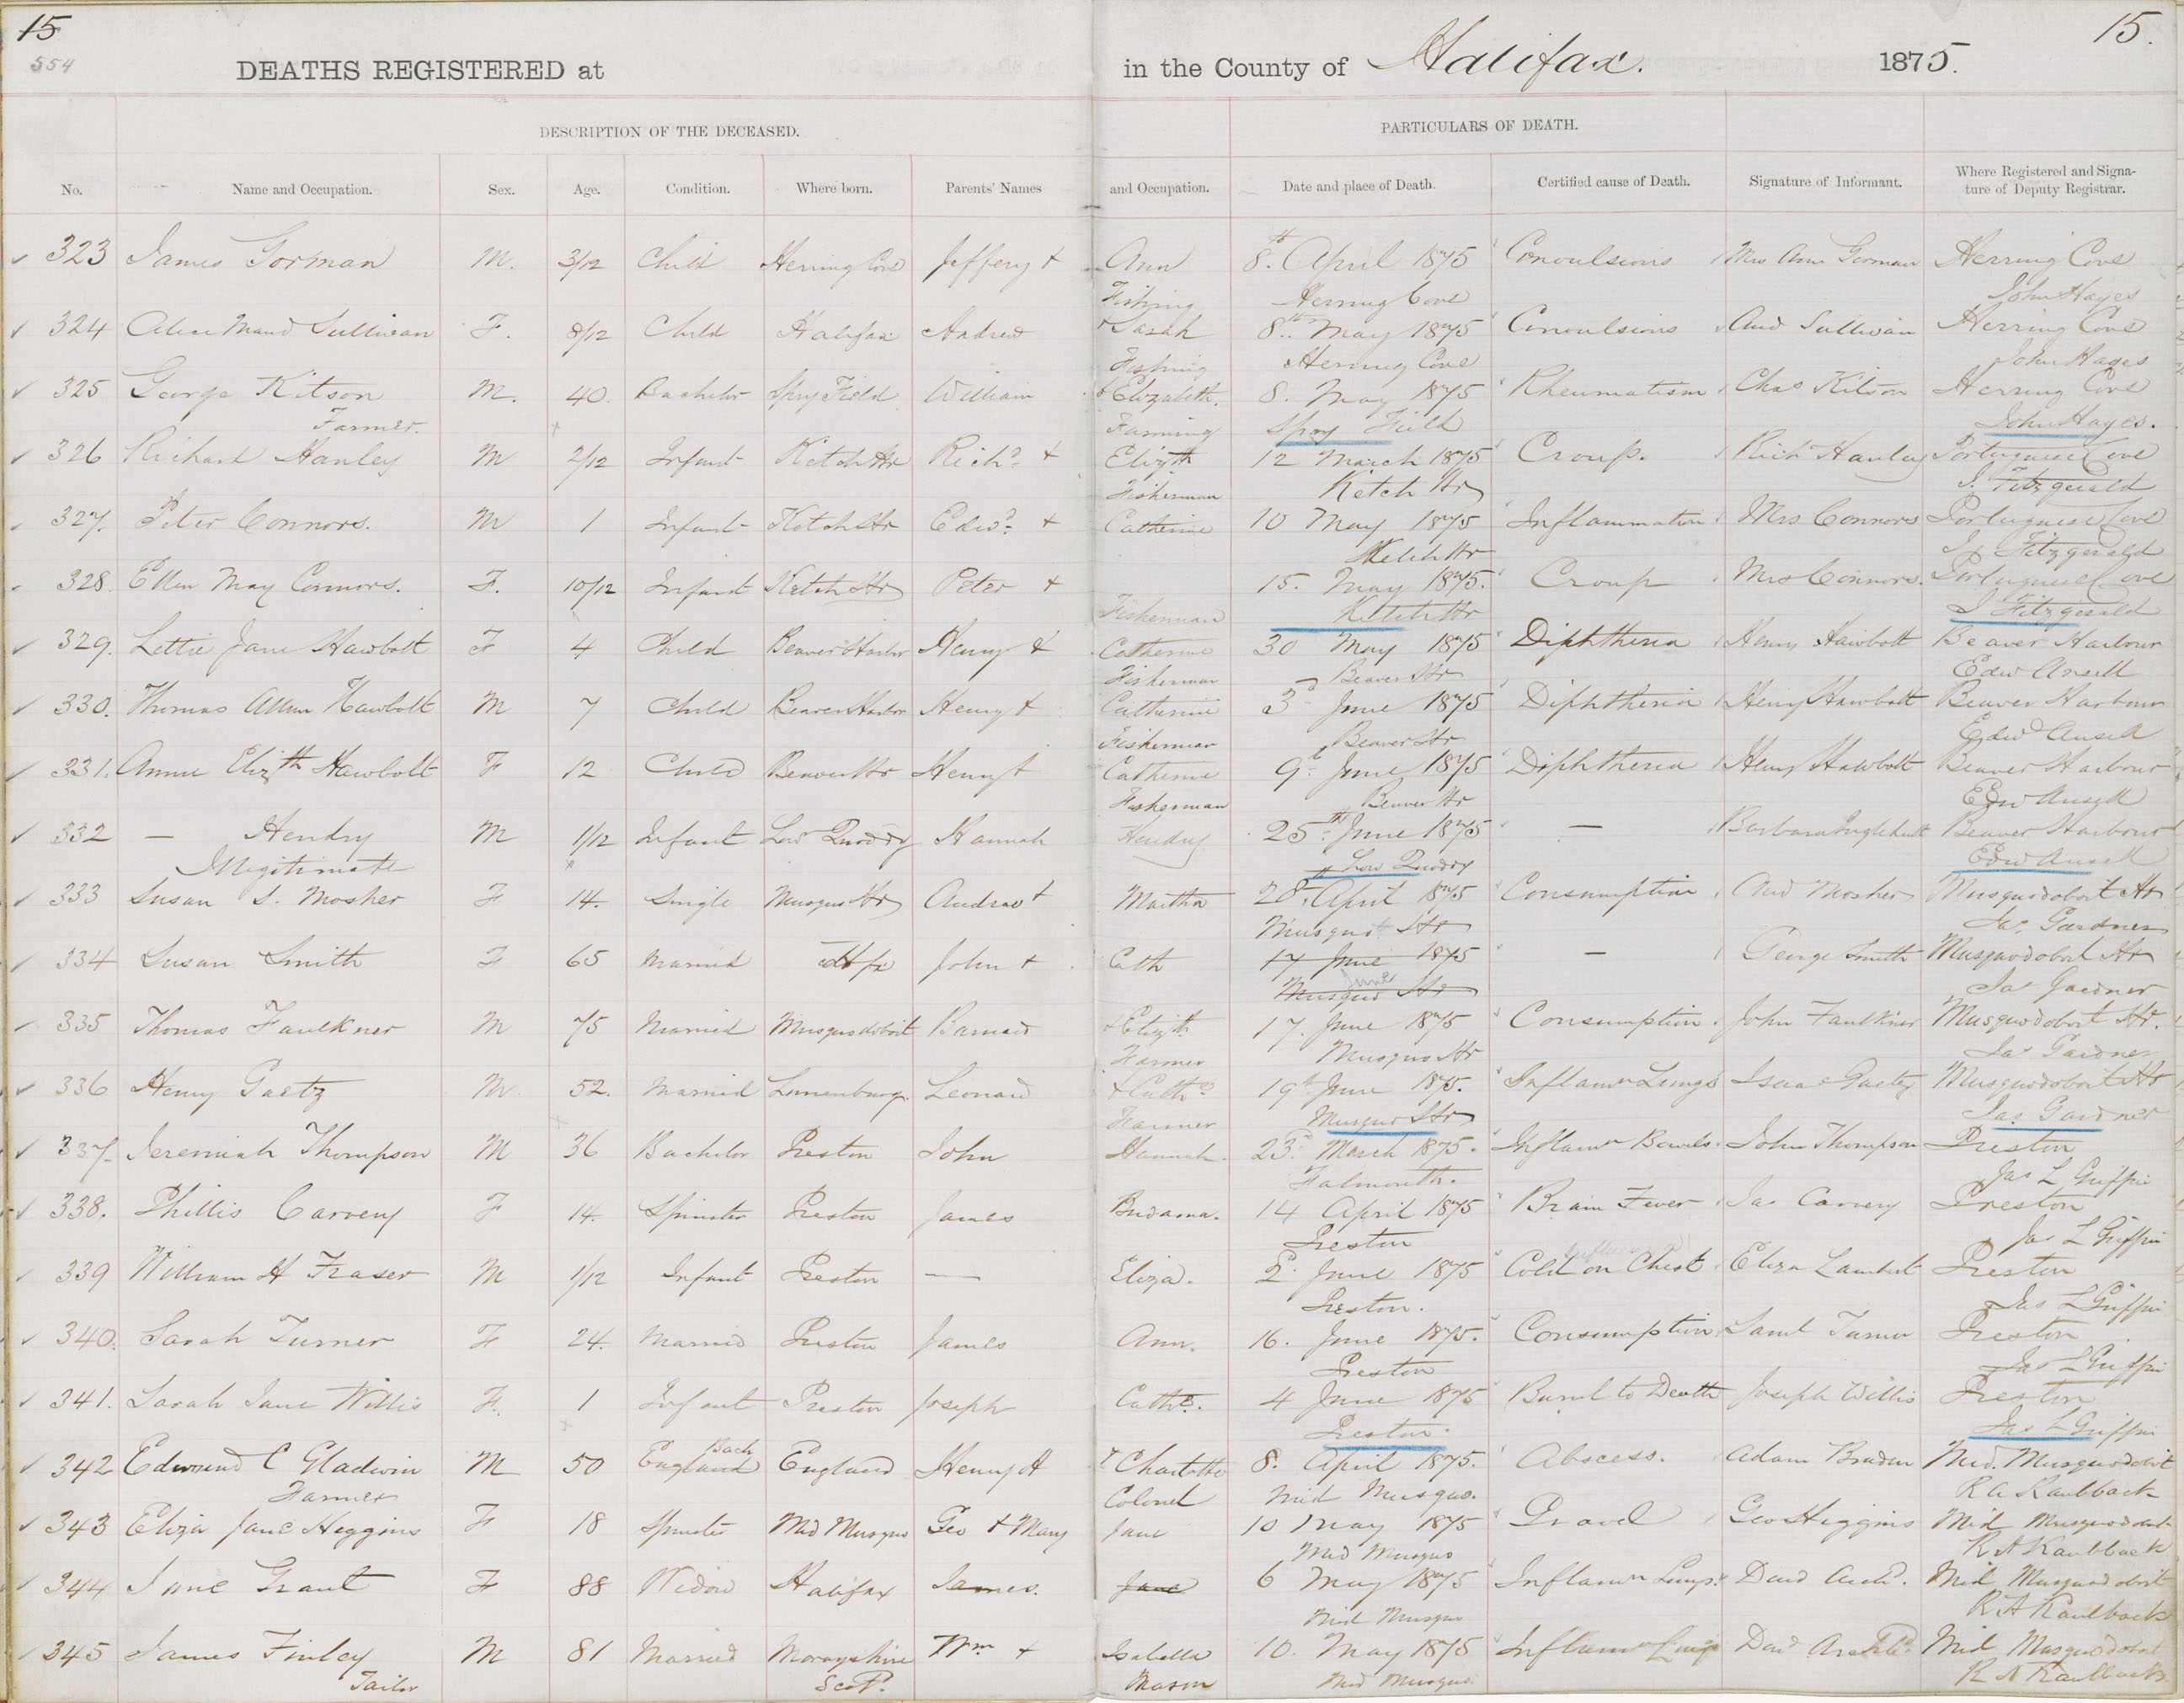 15
15.
554
DEATHS REGISTERED at in the County of Halifax. 1875.
DESCRIPTION OF THE DECEASED. PARTICULARS OF DEATH.
No. Name and Occupation. Sex. Age. Condition. Where born. Parents' Names and Occupation. Date and place of Death. Certified cause of Death. Signature of Informant. Where Registered and Signa-
ture of Deputy Registrar.
323 James Gorman M. 3/12 Child Herring Cove Jeffery + Ann 8th April 1875 Convulsions Mrs Ann Gorman Herring Cove
Fishing Herring Cove John Hayes
324 Alice Maud Sullivan F. 8/12 Child Halifax Andrew + Sarah 8th May 1875 Convulsions And Sullivan Herring Cove
Fishing Herring Cove John Hayes
325 George Kitson M. 40. Bachelor Spry Field William + Elizabeth. 8. May 1875 Rheumatism Chas Kitson Herring Cove
Farmer. Farming Spry Field John Hayes.
326 Richard Hanley M 2/12 Infant Ketch Hr Richd. + Elizth 12 March 1875 Croup. Richd Hanley Portuguese Cove
Fisherman Ketch Hr J. Fitzgerald
327. Peter Connors. M 1 Infant Ketch Hr Edwd. + Catherine 10 May 1875 Inflammation Mrs Connors Portuguese Cove
Ketch Hr J. Fitzgerald
328 Ellen May Connors. F. 10/12 Infant Ketch Hr Peter + 15. May 1875. Croup Mrs Connors. Portuguese Cove
Fisherman Ketch Hr J Fitzgerald
329. Lettie Jane Hawbolt F 4 Child Beaver Harbor Henry & Catherine 30 May 1875 Diphtheria Henry Hawbolt Beaver Harbour
Fisherman Beaver Hr Edw Ansell
330. Thomas Allen Hawbolt M 7 Child Beaver Harbor Henry + Catherine 3d June 1875 Diphtheria Henry Hawbolt Beaver Harbour
Fisherman Beaver Hr Edwd Ansell
331. Annie Elizth Hawbolt F 12 Child Beaver Hr Henry + Catherine 9th June 1875 Diphtheria Henry Hawbolt Beaver Harbour
Fisherman Beaver Hr Edw Ansell
332 — Hendry M 1/12 Infant Low Quoddy Hannah Hendry 25th June 1875 — Barbara Beaver Harbour
Illegitimate Low Quoddy Edw Ansell
333 Susan S. Mosher F 14. Single Musquo Hr Andrew + Martha 28th April 1875 Consumption And Mosher Musquodoboit Hr
Musquo Hr Jas. Gardner
334 Susan Smith F 65 Married Hfx John + Cath 17 June 1875 — George Smith Musquodoboit Hr
June
Musquo Hr Jas Gardner
335 Thomas Faulkner M 75 Married Musquodoboit Barnard + Elizth 17. June 1875 Consumption John Faulkner Musquodoboit Hr.
Farmer Musquo Hr Jas Gardner
336 Henry Gaetz M. 52. Married Lunenburg. Leonard + Cathe 19th June 1875. Inflamn Lungs Isaac Gaetz Musquodoboit Hr
Farmer Musquo Hr Jas. Gardner
337. Jeremiah Thompson M 36 Bachelor Preston John Hannah. 23d March 1875. Inflamn Bowels. John Thompson Preston
Falmouth. Jas L Griffin
338. Phillis Carvery F 14. Spinster Preston James 14 April 1875 Brain Fever Jas Carvery Preston
Preston Jas L Griffin
339 William H Fraser M 1/12 Infant Preston — Eliza. 2d June 1875 Cold on Chest Eliza Lambert Preston
Preston. Jas L Griffin
340. Sarah Turner F 24. Married Preston James Ann. 16. June 1875. Consumption Saml Turner Preston
Preston Jas L Griffin
341. Sarah Jane Willis F. 1 Infant Preston Joseph Cathe. 4 June 1875 Burnt to Death Joseph Willis Preston
Preston. Jas L Griffin
Bach
342 Edmund C Gladwin M 50 England England Henry H + Charlotte 8. April 1875. Abscess. Adam Mid. Musquodoboit
Farmer Colonel Mid Musquo. R A Kaulback
343 Eliza Jane Higgins F 18 Spinster Mid Musquo Geo + Mary Jane 10 May 1875 Gravel Geo Higgins Mid Musquodoboit
Mid Musquo R A Kaulback
344 Jane Grant F 88 Widow Halifax James. Jane 6 May 1875 Inflamn Lungs. Davd Archd. Mid Musquodoboit
Mid Musquo R A Kaulback
345 James Finley M 81 Married Morayshire Wm + Isabella 10. May 1875 Inflamn Lungs Davd Archbd. Mid Musquodoboit
Tailor Scotd. Mason Mid Musquo. R A Kaulback